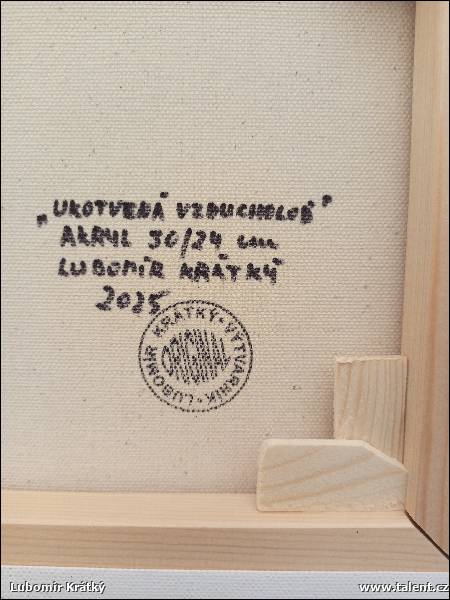 „UKOTVENÁ VZDUCHOLOĎ"
AKRYL 30/24 cm
LUBOMÍR KRÁTKÝ
2025
LUBOMÍR KRÁTKÝ • VÝTVARNÍK •
ORIGINAL
Lubomír Krátký
www.talent.cz